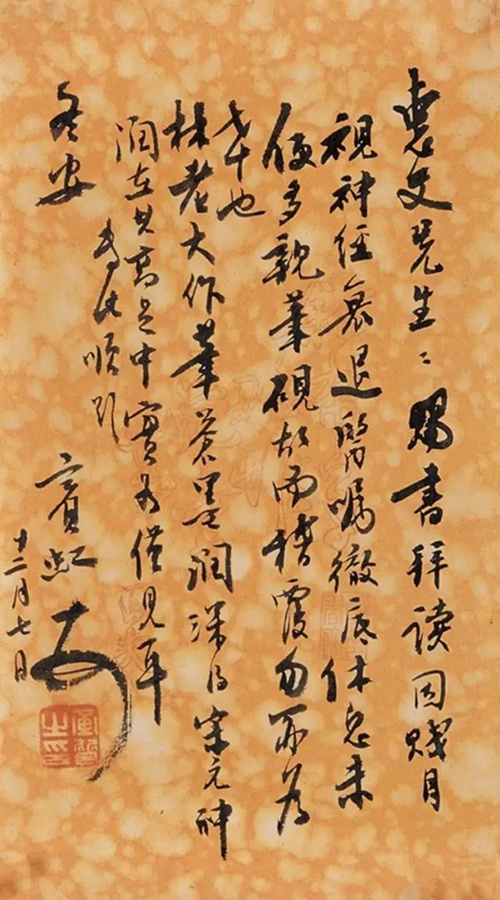 惠文先生〻賜書拜读因賤目
視神經衰退醫嘱徹底休息未
便多親筆硯故而稽覆勿為
幸也
林老大作筆蒼墨潤深得宋元神
润在其高足中實为僅見耳
専此順頌
冬安
賓虹
十二月七日